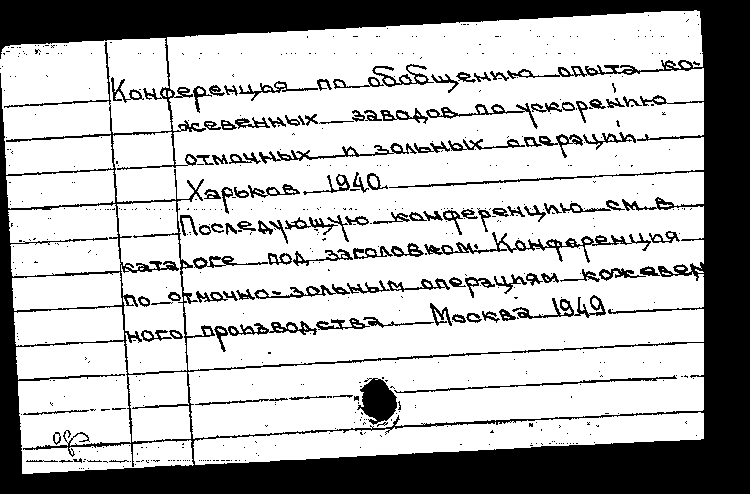 Конференция по обобщению опыта ко-
жевенных заводов по ускорению
отмочных и зольных операций.
Харьков. 1940.
Последующую конференцию см. в
каталоге под заголовком: Конференция
по отмочно-зольным операциям кожевен
ного производства. Москва. 1949.